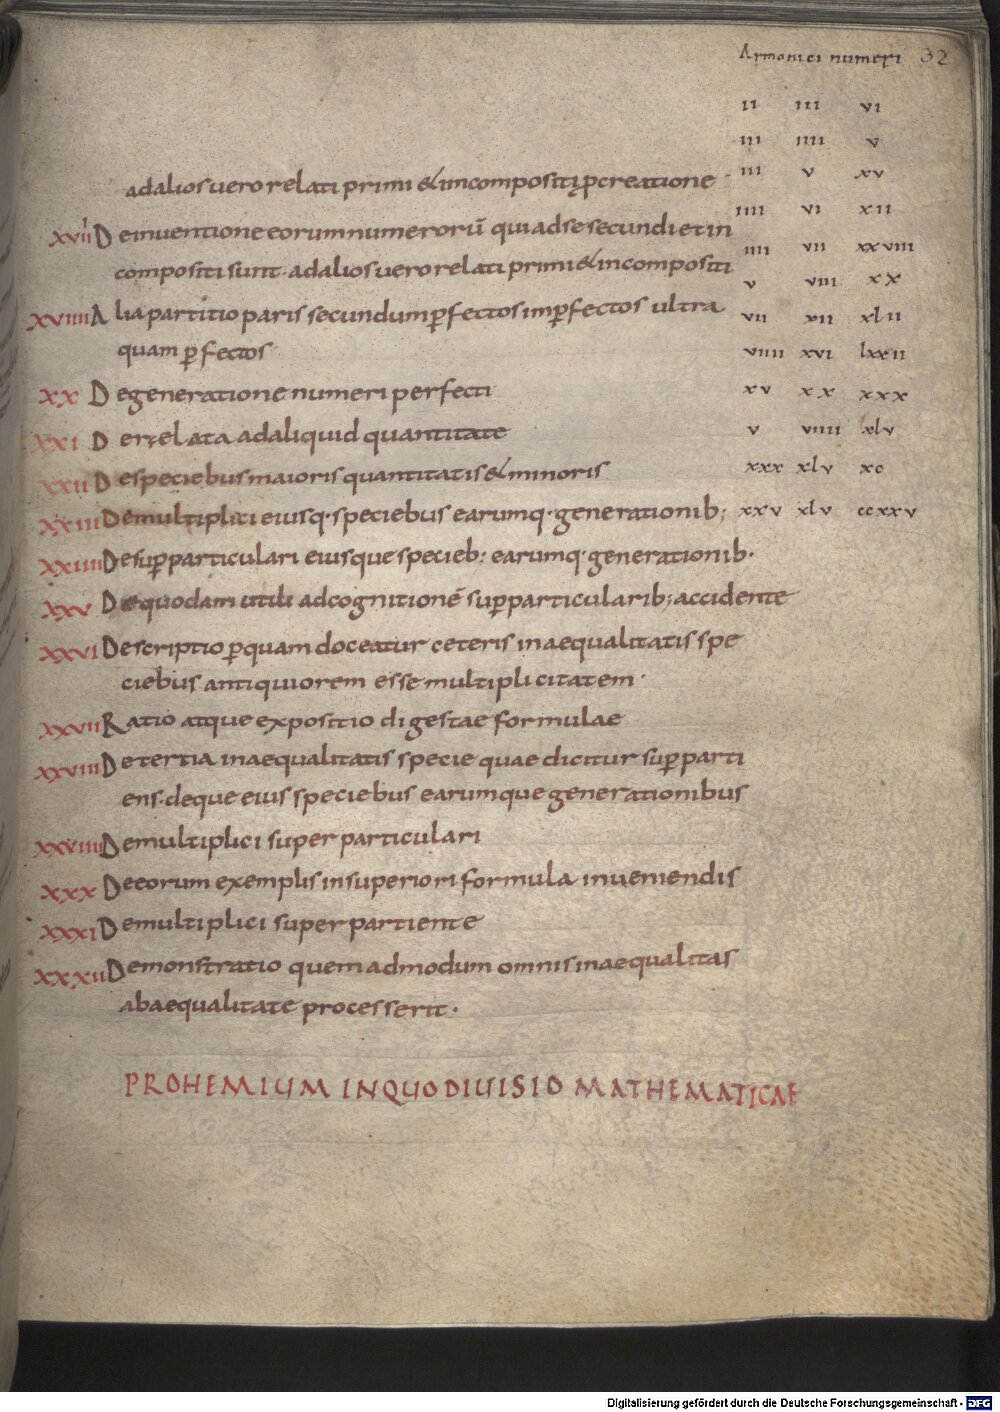 Armonici numeri 32
ii iii vi
iii iiii v
iii v xv
iiii vi xii
iiii vii xxviii
v viii xx
vii xii xlii
viiii xvi lxxii
xv xx xxx
v viiii xlv
xxx xlv xc
xxv xlv ccxxv
adalios uero relati primi & incompositi ꝓcreatione
xviii De inuentione eorum numerorū qui ad se secundi et in
compositi sunt · ad alios uero relati primi & incompositi
xviiii Alia partitio paris secundum ꝑfectos imꝑfectos ultra
quam ꝑfectos
xx De generatione numeri perfecti
xxi De relata ad aliquid quantitate
xxii De speciebus maioris quantitatis & minoris
xxiii De multiplici eiusq· speciebus earumq· generationib;
xxiiii De suꝑparticulari eiusque specieb; earumq· generationib·
xxv De quodam utili ad cognitionē suꝑparticularib; accidente
xxvi Descriptio ꝑ quam doceatur ceteris inaequalitatis spe
ciebus antiquiorem esse multiplicitatem ·
xxvii Ratio atque expositio digestae formulae
xxviii De tertia inaequalitatis specie quae dicitur suꝑparti
ens · deque eius speciebus earumque generationibus
xxviiii De multiplici super particulari
xxx De eorum exemplis in superiori formula inueniendis
xxxi De multiplici super partiente
xxxii Demonstratio quemadmodum omnis inaequalitas
ab aequalitate processerit ·
PROHEMIUM IN QUO DIUISIO MATHEMATICAE
Digitalisierung gefördert durch die Deutsche Forschungsgemeinschaft - DFG